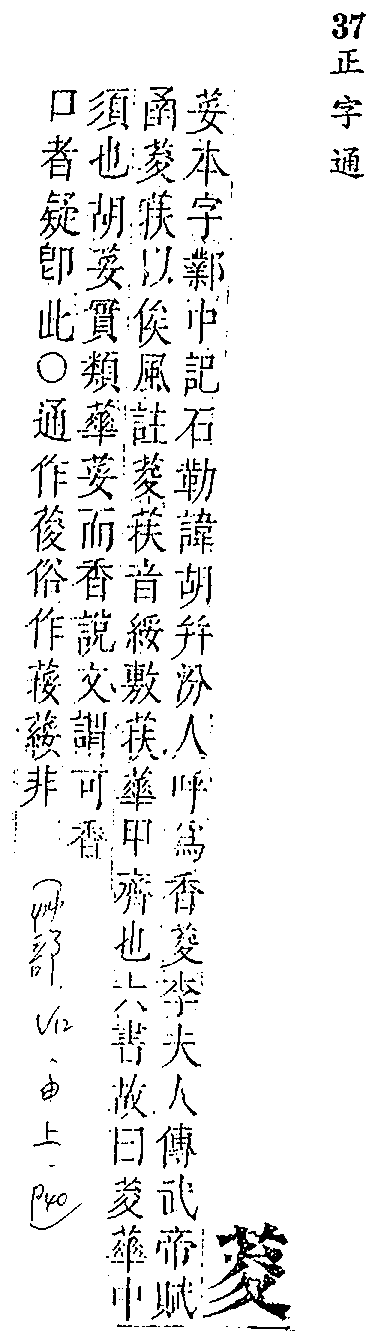 37正字通
荾
荽本字鄴中記石勒諱胡幷汾人呼爲香荾李夫人傳武帝賦
函荾荴以俟風註荾荴音綏敷荴華甲齊也六書故曰荾華中
須也胡荽質類華荽而香說文謂可香
口者疑卽此○通作葰俗作非
(艸部. V12、申上. P40)